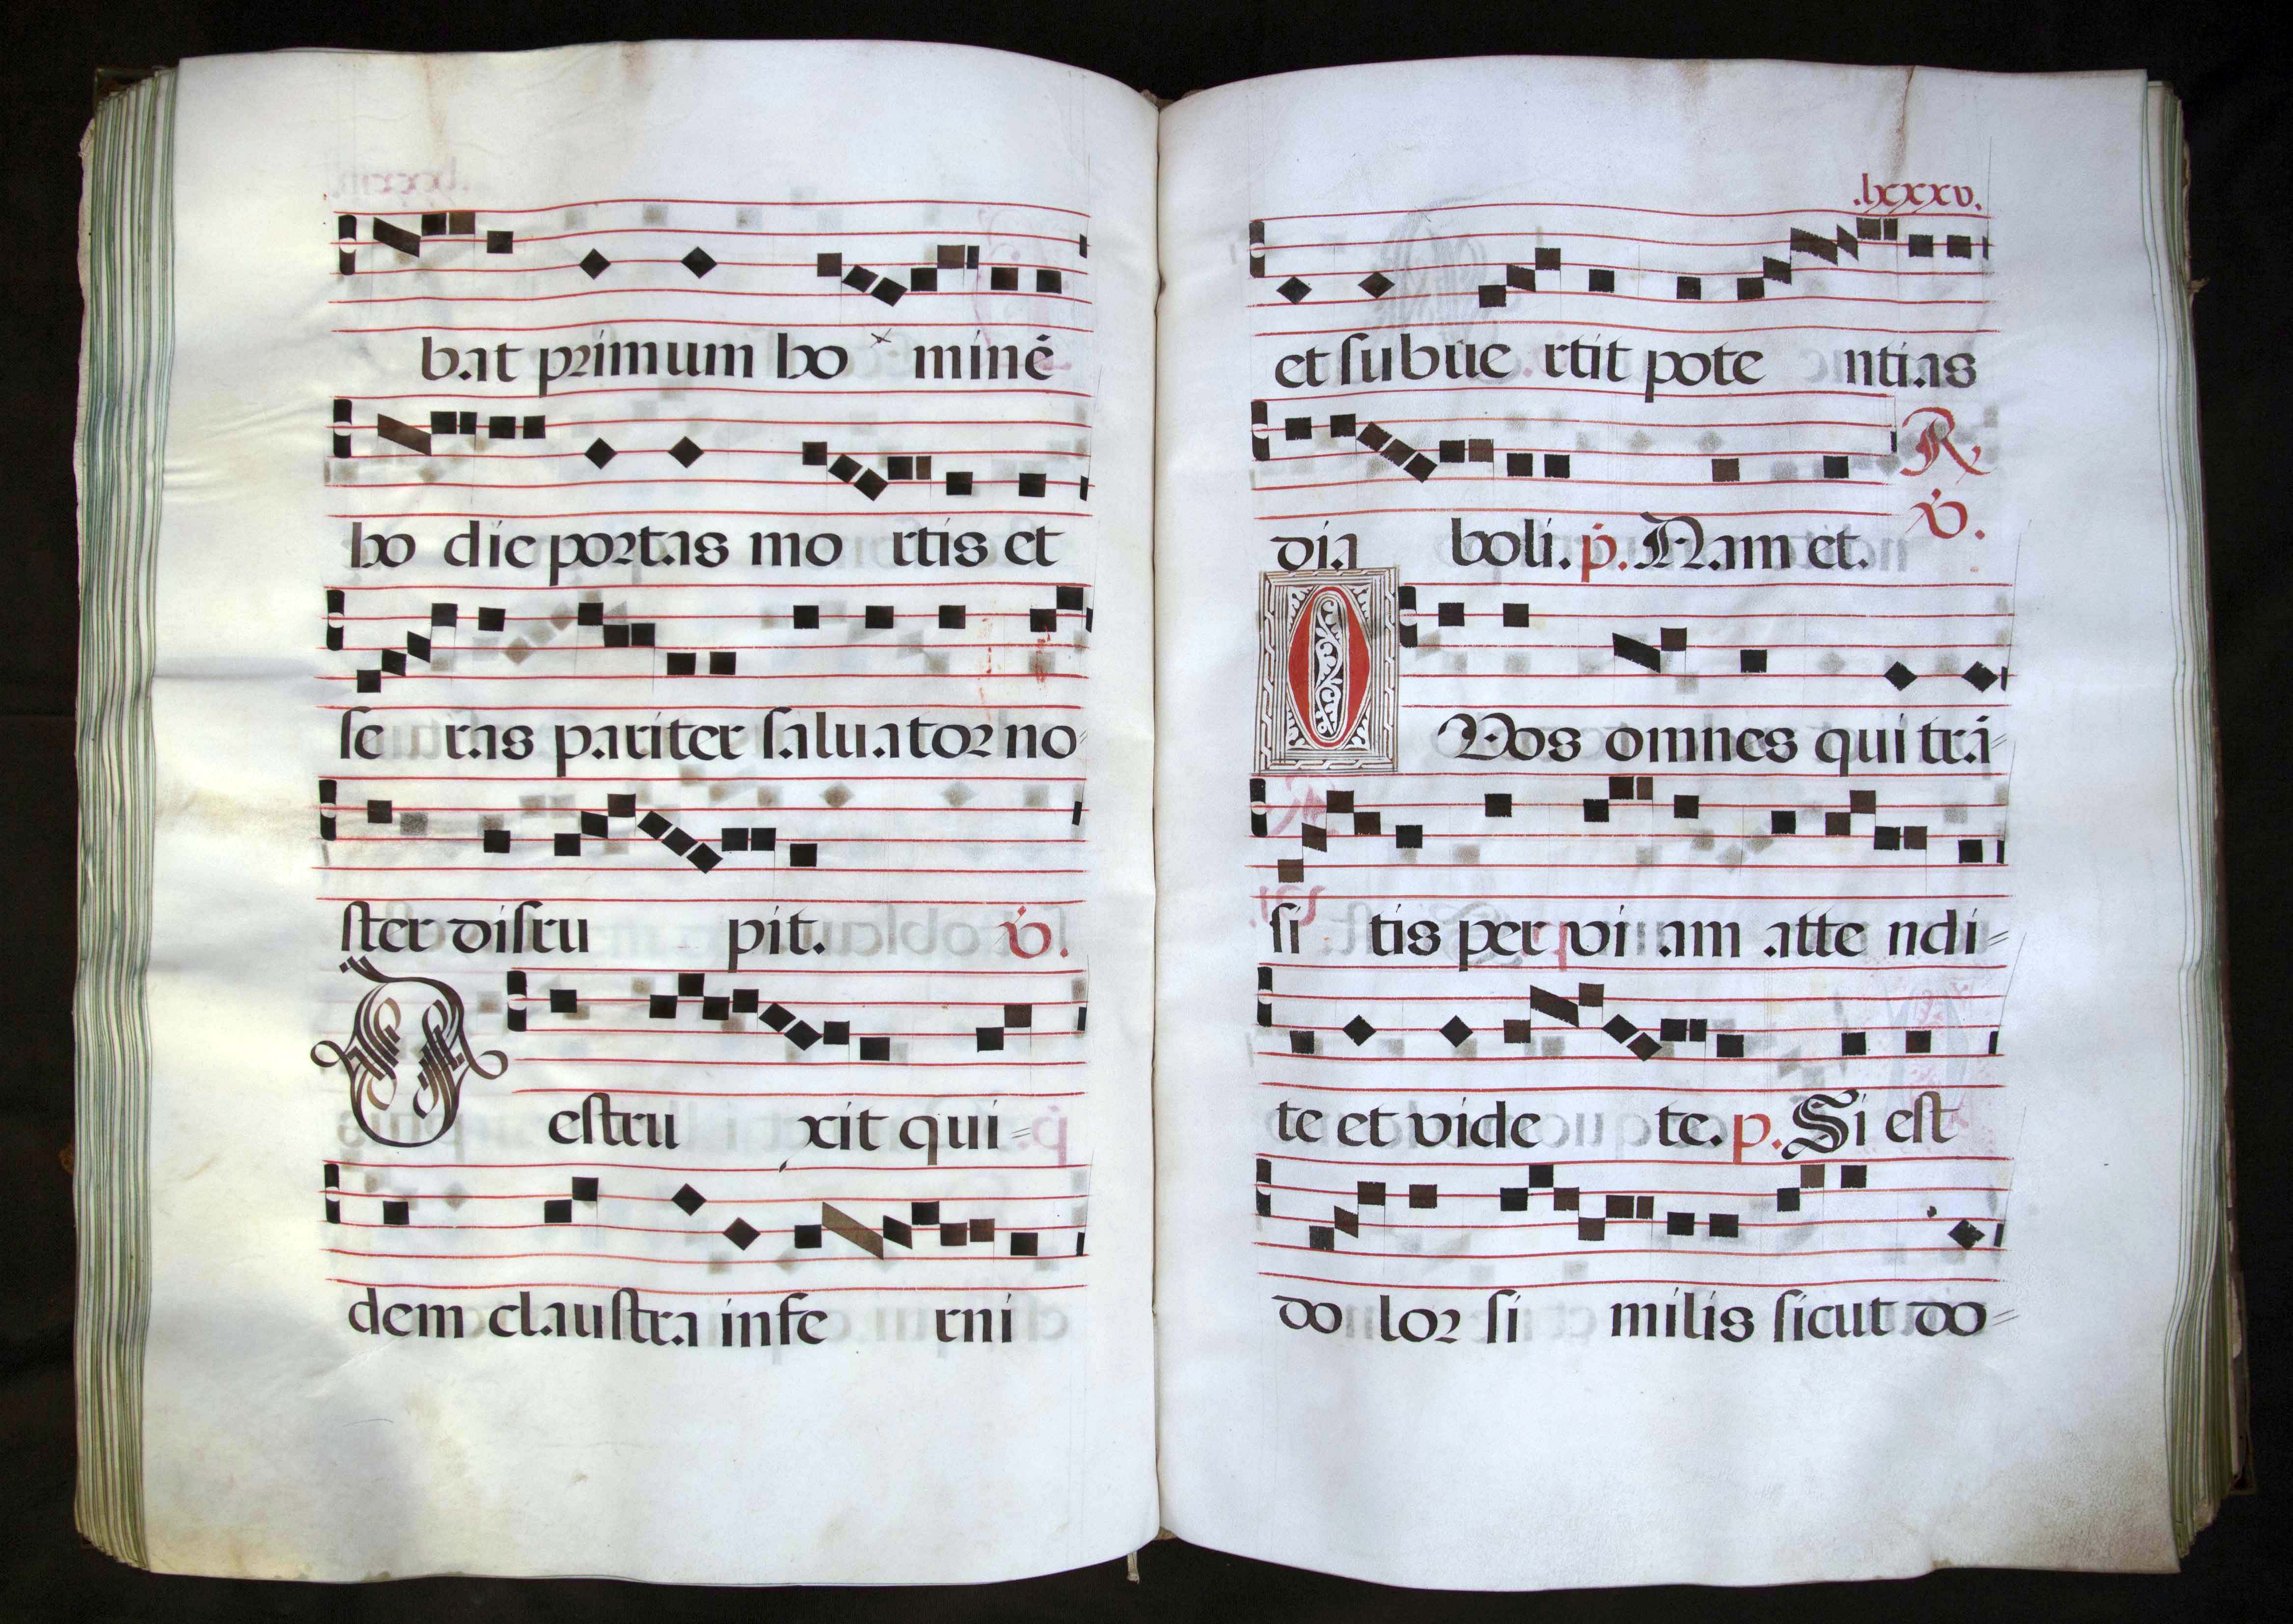 bat primum ho minē
ho die portas mo rtis et
se ras pariter saluator no=
ster disru pit. ℣.
D estru xit qui=
dem claustra infe rni
.lxxxv.
et subue rtit pote ntias
℟.
dia boli. p. Nam et. ℣.
O Vos omnes qui trā=
si tis per vi am atte ndi=
te et vide te. p. Si est
do lor si milis sicut do=